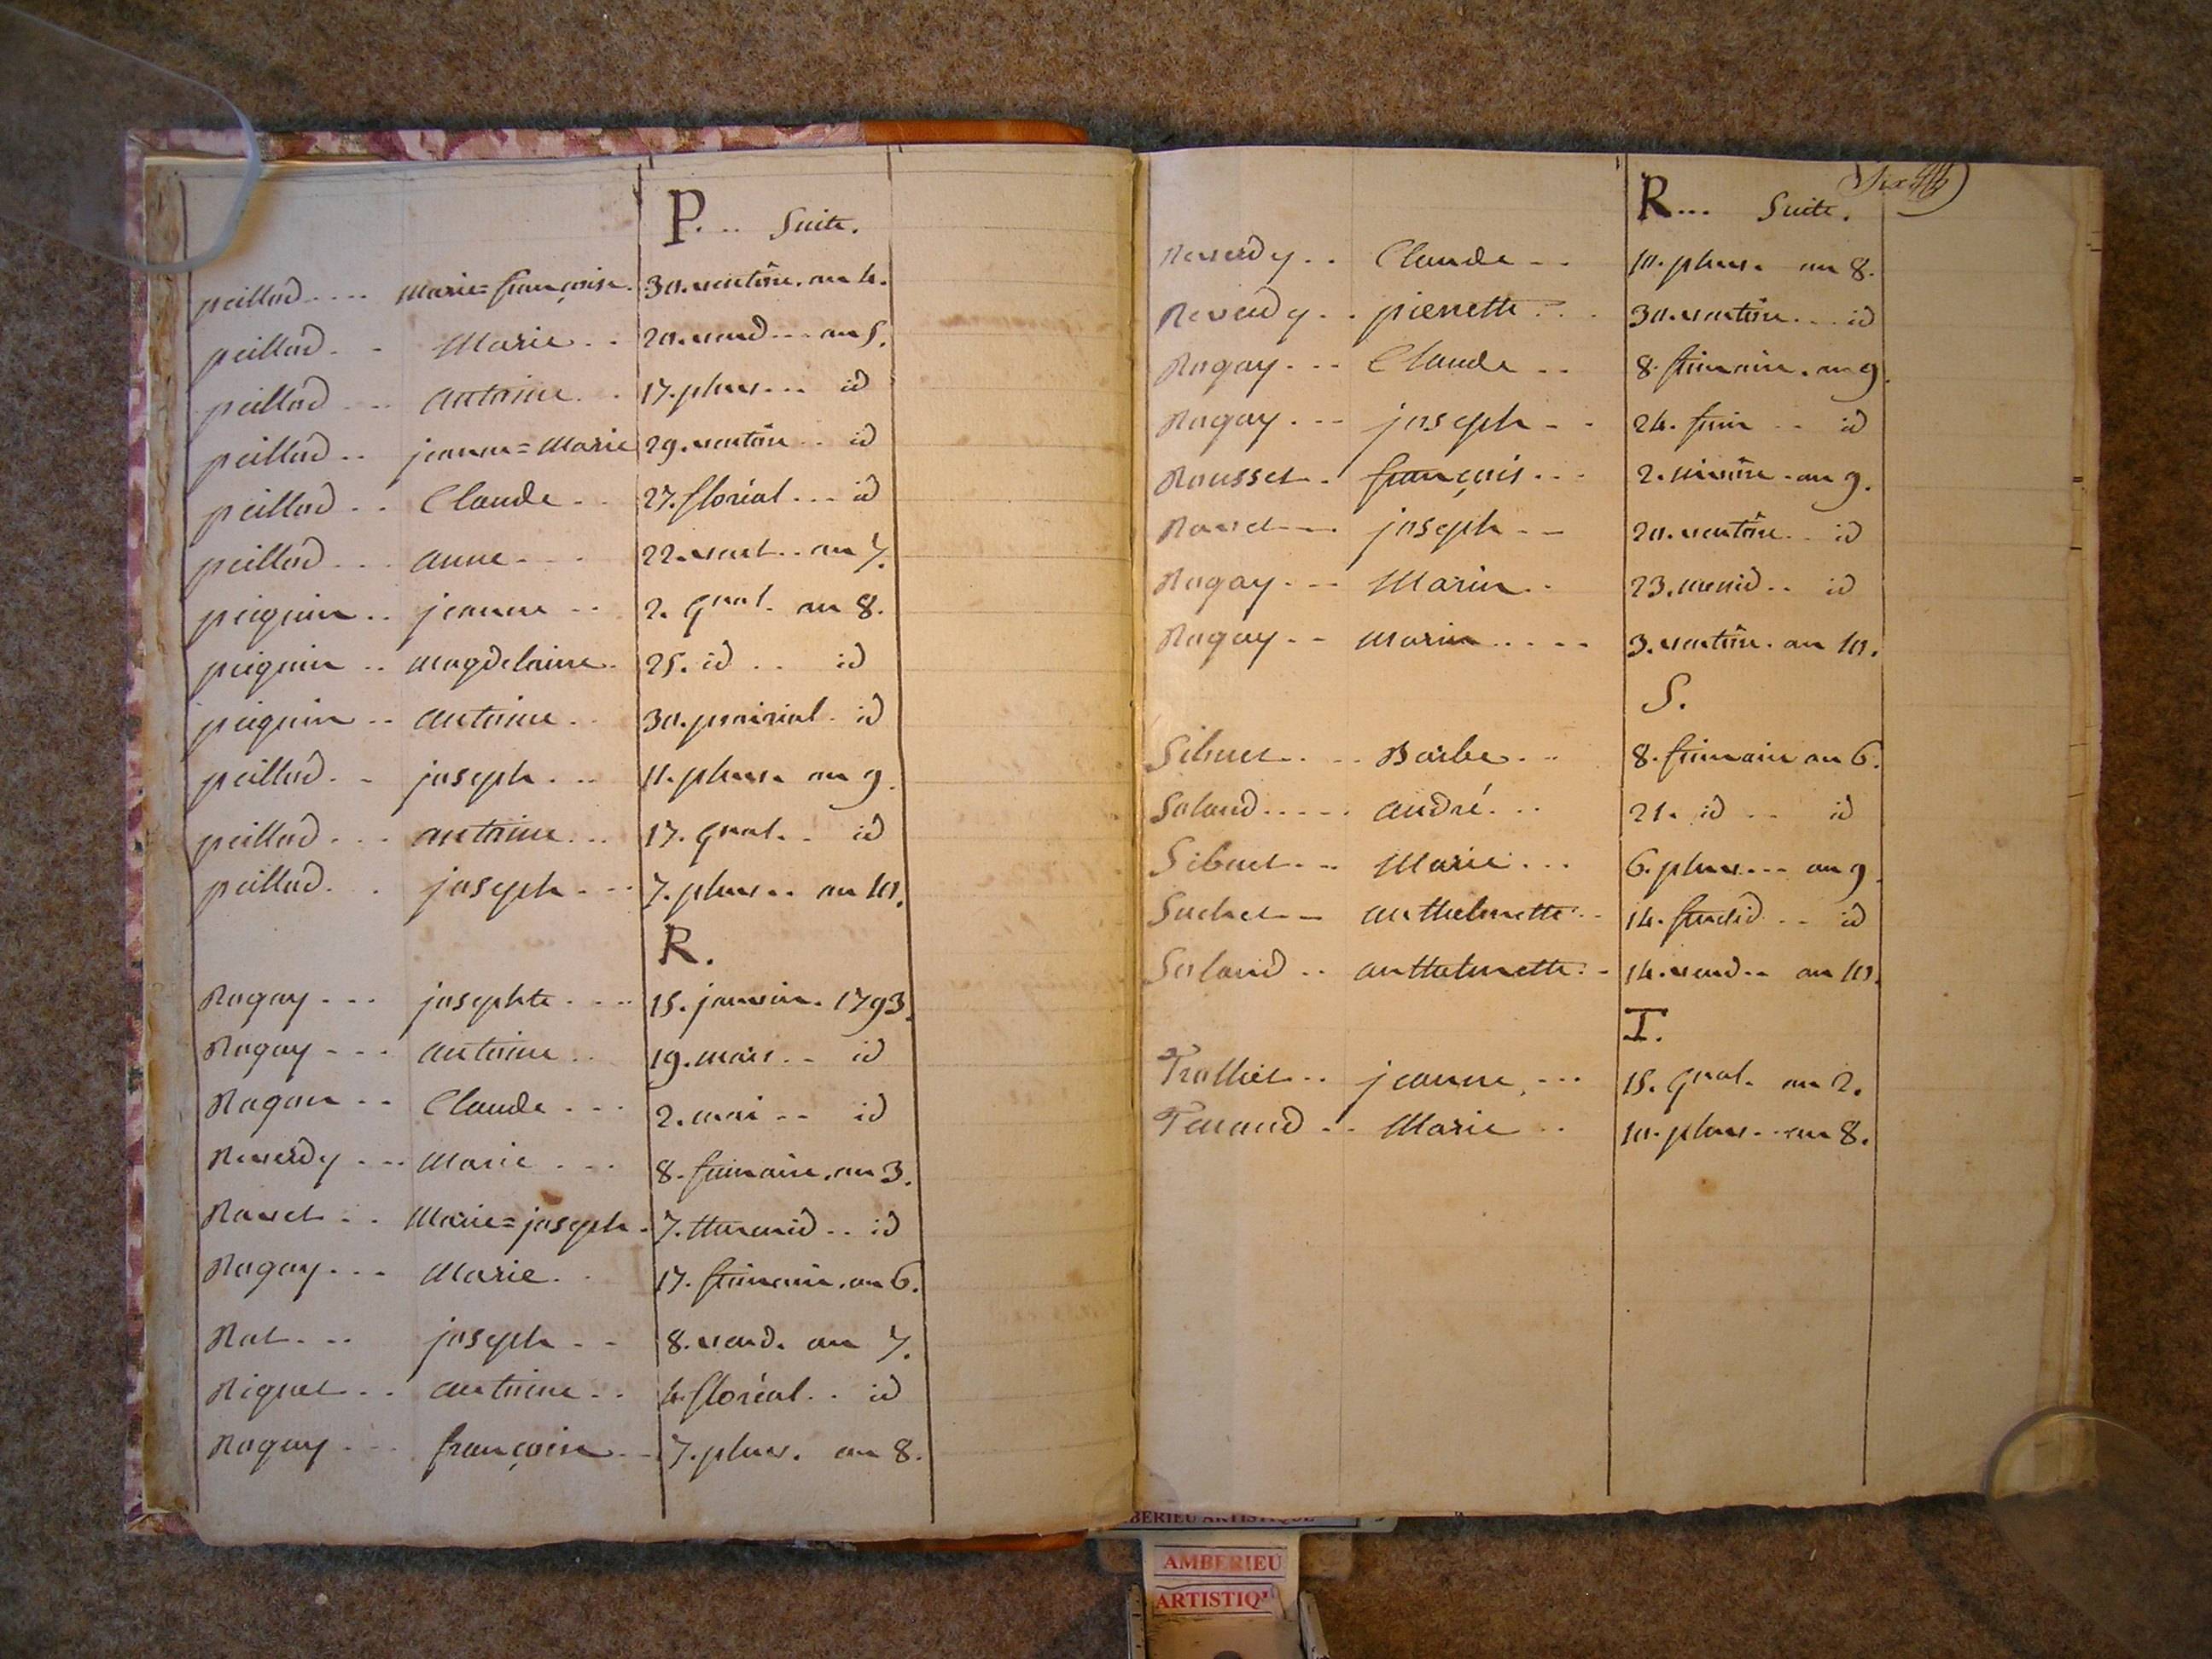 P... Suite.
peillod.... Marie=françoise. 30. ventôse. an 4.
peillod. - Marie.. 20. vend... an 5.
peillod... antoine.. 17. pluv... id
peillod.. jeanne=Marie 29. ventôse.. id
peillod.. Claude.. 27. floréal... id
peillod... anne... 22. vent.. an 7.
peiguin.. jeanne.. 2. gnal. an 8.
peiguin.. magdelaine. 25. id.. id
peiguin.. antoine.. 30. prairial. id
peillod.. joseph... 11. pluv. an 9.
peillod... antoine... 17. gnal.. id
peillod.. joseph... 7. pluv.. an 10.
R.
Rogay... josephte.... 15. janvier. 1793.
Rogay... antoine.. 19. mars.. id
Claude... 2. mai.. id
Reverdy... Marie... 8. frimaire. an 3.
Ravet... Marie=joseph. 7. thermid.. id
Rogay... Marie.. 17. frimaire. an 6.
Rat... joseph.. 8. vend. an 7.
Riguet.. antoine.. 4. floréal.. id
Rogay... françoise.. 7. pluv. an 8.
R... Suite.
Reverdy.. Claude.. 10. pluv. an 8.
Reverdy.. pierrette... 30. ventôse... id
Rogay... Claude.. 8. frimaire. an 9.
Rogay... joseph.. 24. frim.. id
Rousset. françois... 2. nivôse. an 9.
Ravet... joseph.. 20. ventôse.. id
Rogay... Marin.. 23. messid.. id
Rogay.. Marin..... 3. ventôse. an 10.
S.
Sibuet... Barbe... 8. frimaire an 6.
Soland..... andré... 21. id.. id
Sibuet... Marie... 6. pluv... an 9.
Suchet.. anthelmette.. 14. fructid.. id
Soland.. anthelmette.. 14. vend.. an 10.
T.
Trolliet.. jeanne.... 15. gnal. an 2.
Marie.. 10. pluv... an 8.
AMBERIEU
ARTISTIQ